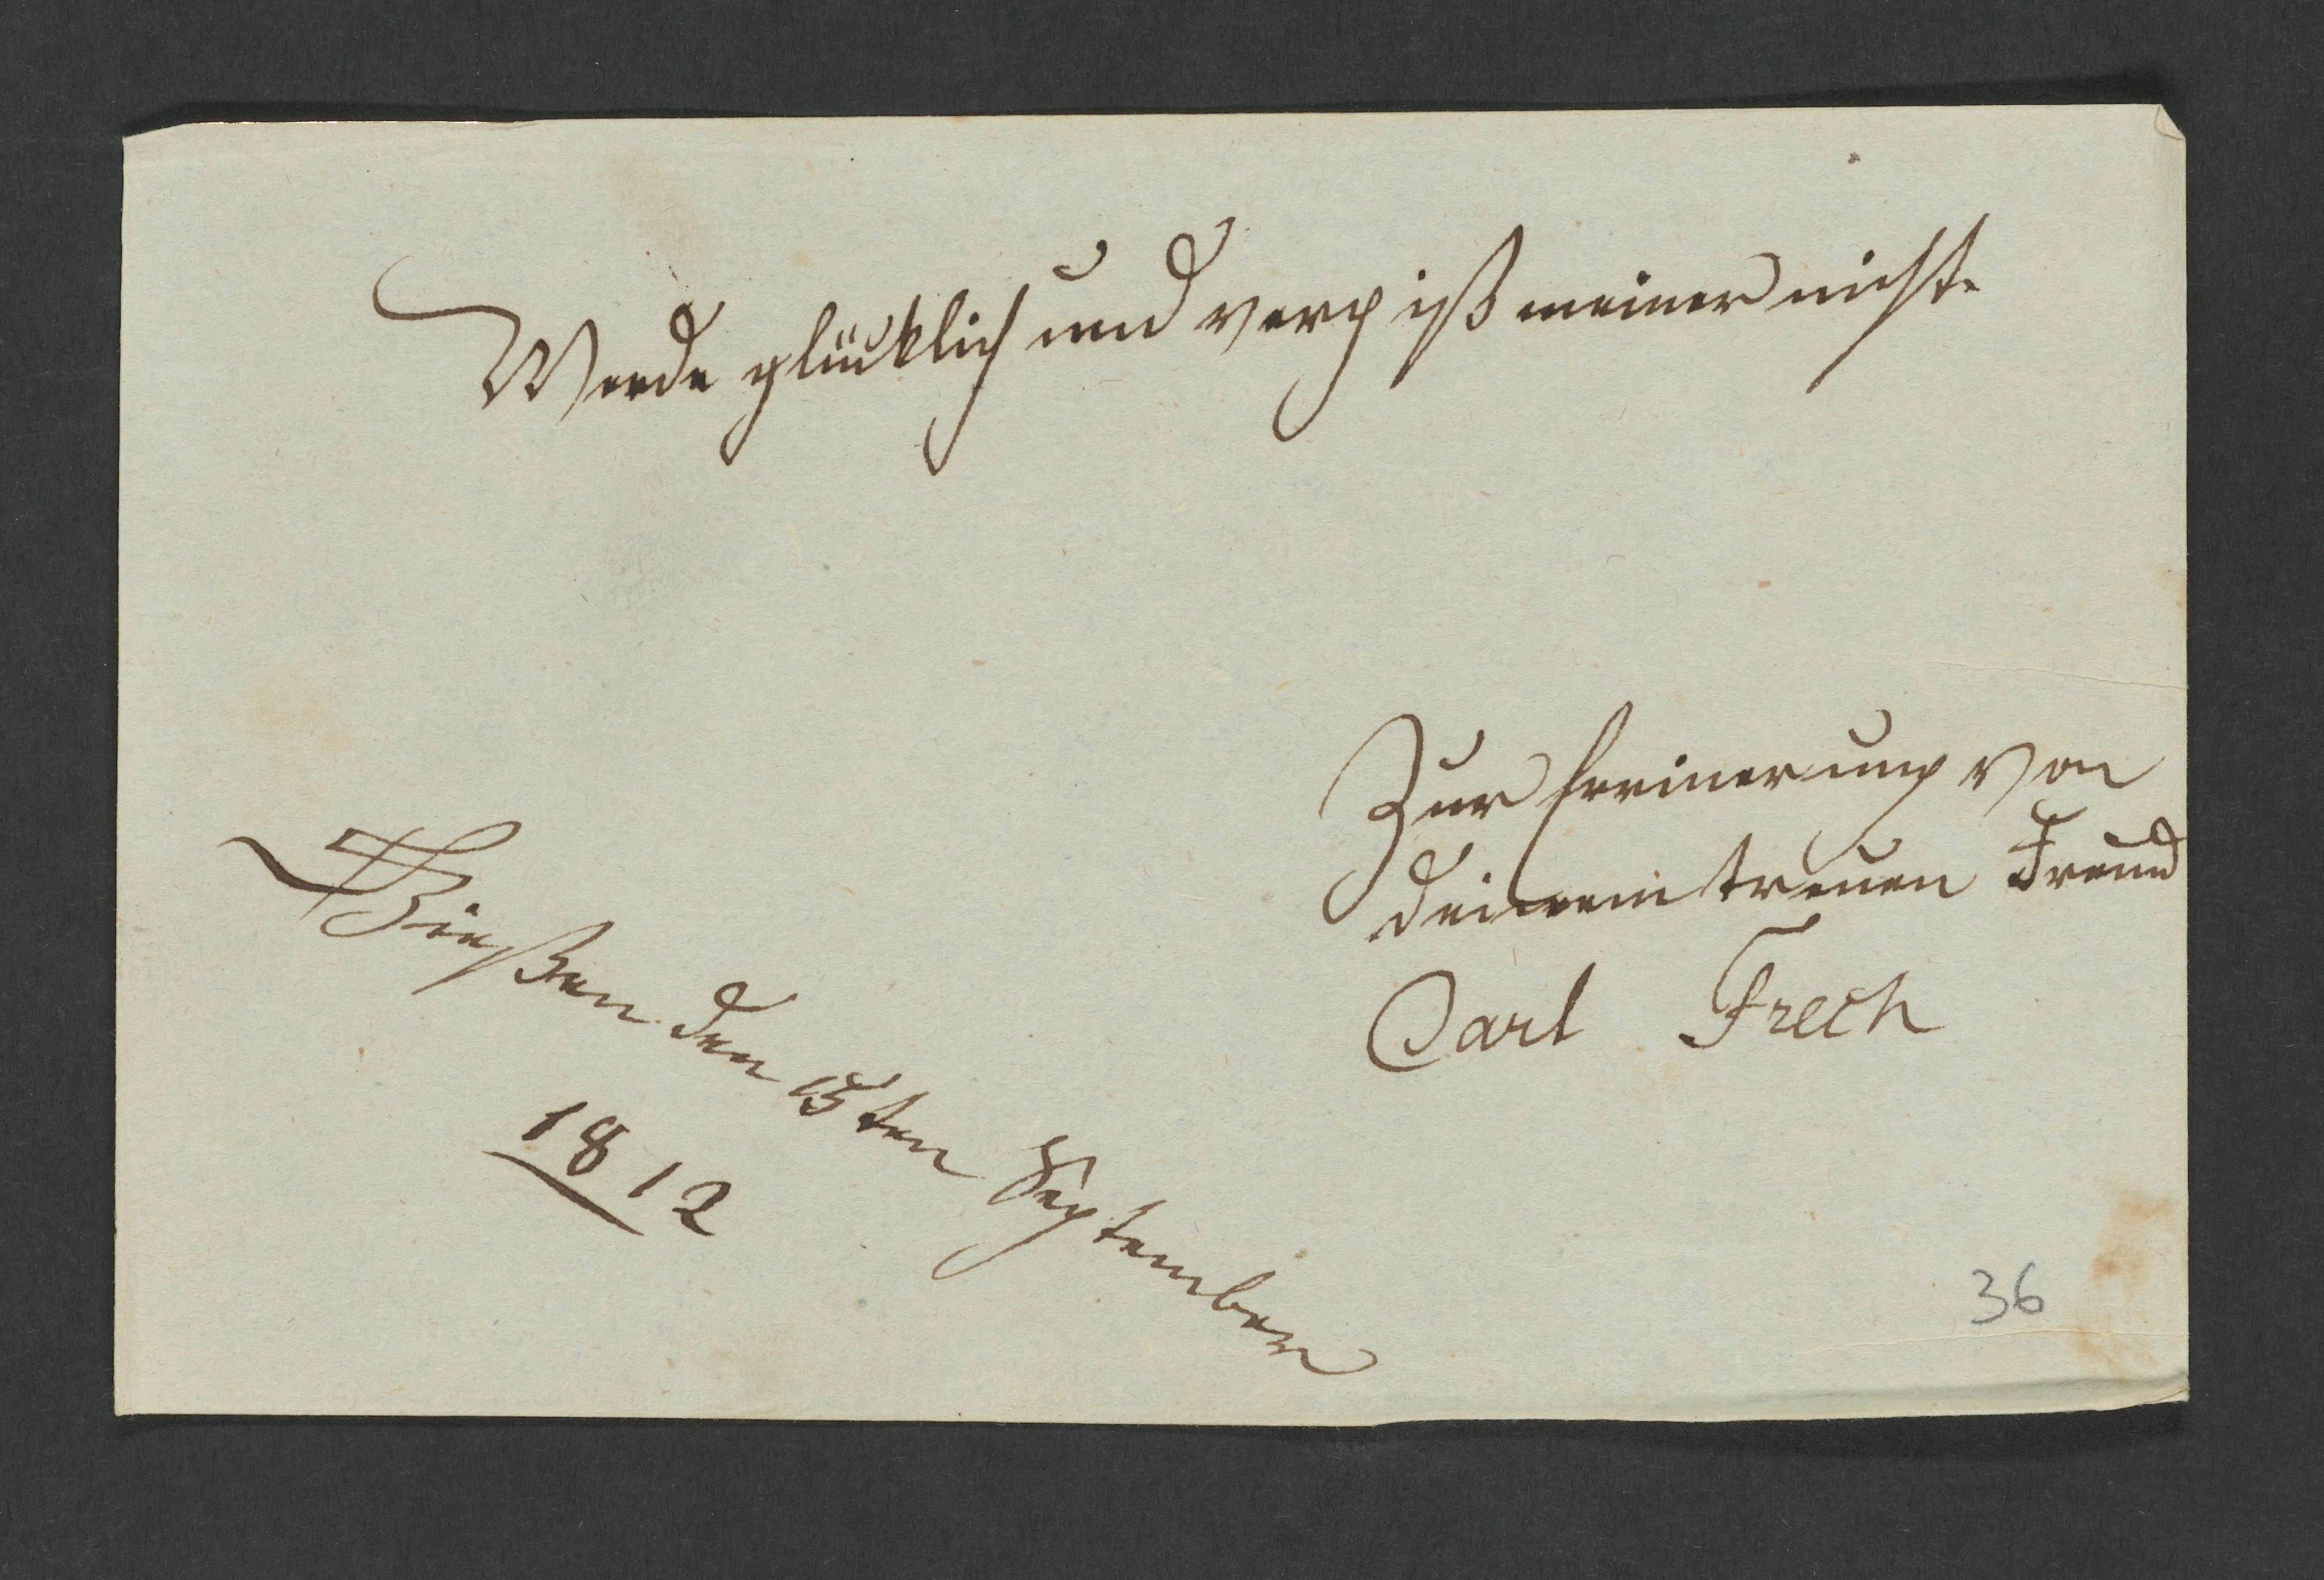 Werde glücklich und vergiß meiner nicht.
Zur Erinerung von
deinem treuen Freund
Carl Frech
Gießen den 15ten September
1812
36